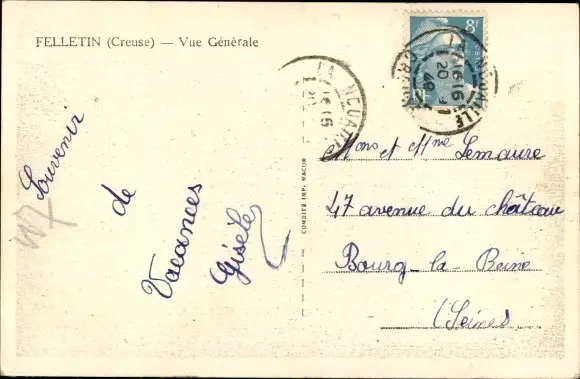 FELLETIN (Creuse) — Vue Générale
Souvenir
de
Vacances
Gisèle
COMBIER IMP. MACON
8F
LA NOUAILLE
16 15
20
49
Mons et Mme Lemaure
47 avenue du château
Bourg-la-Reine
(Seines)